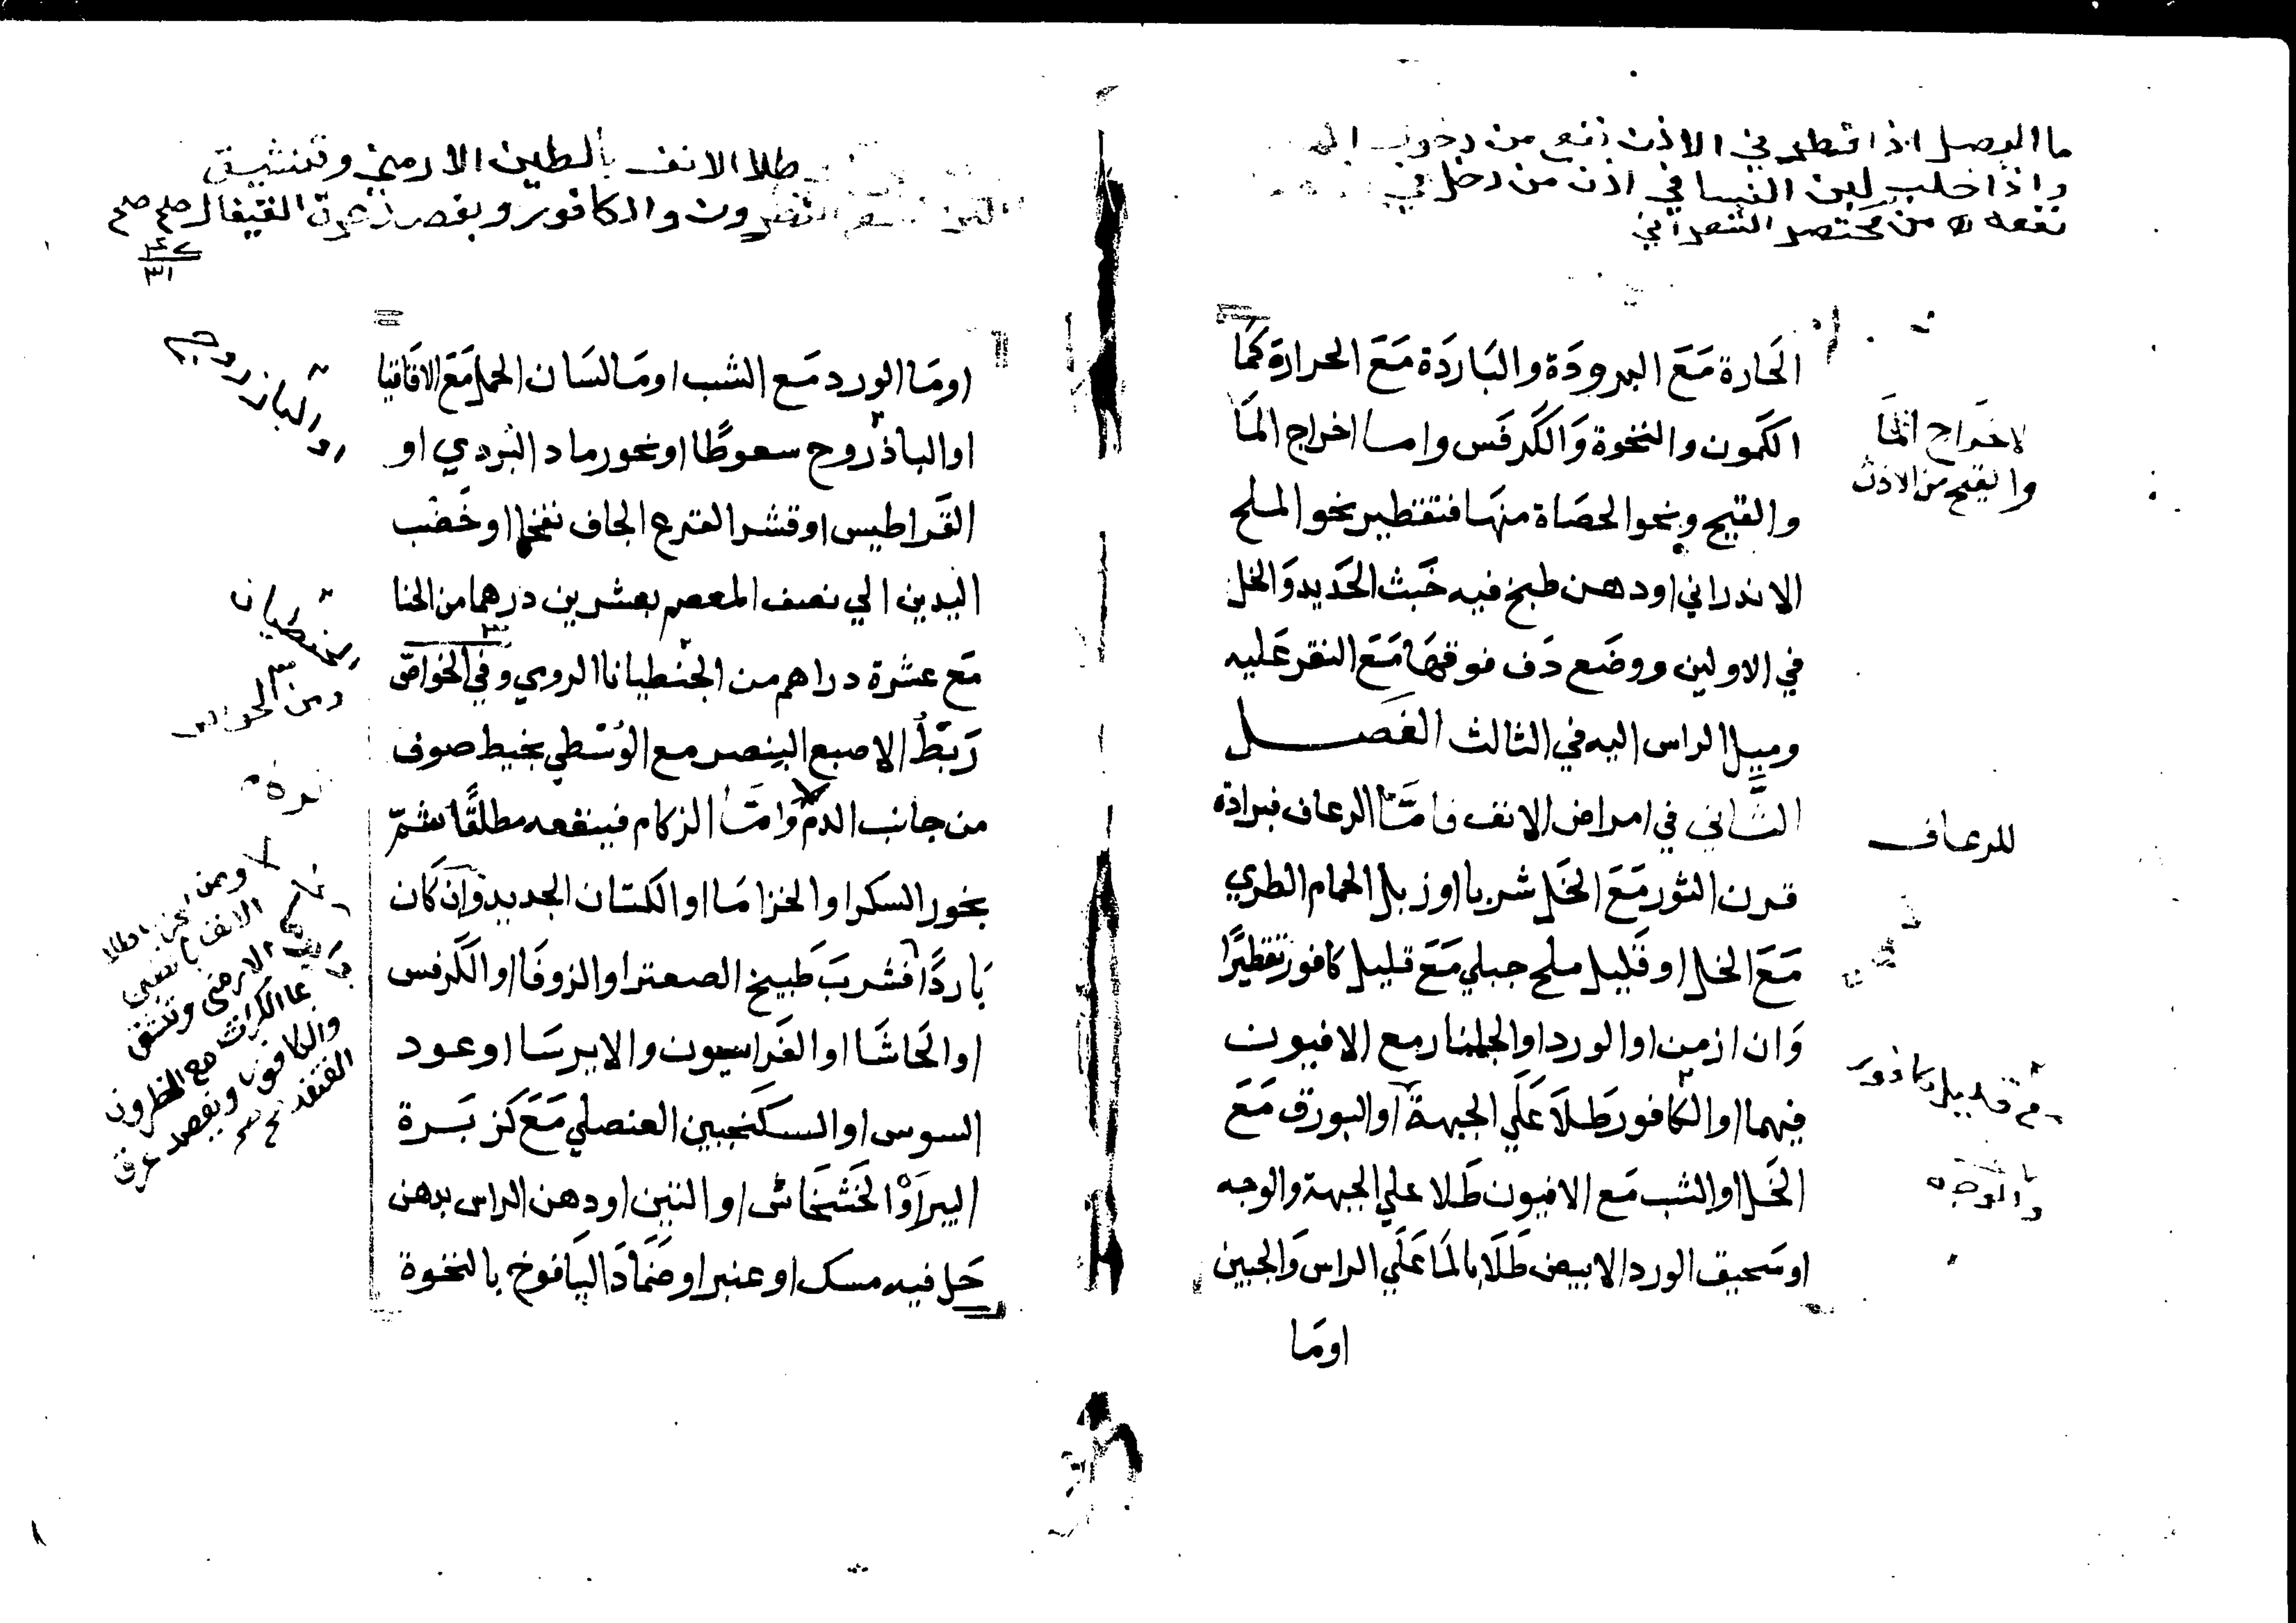 ما البصل اذا قطر في الاذن نفع من دخول
واذا حلب لبن النسا في اذن من دخل في
نفعه من مختصر الشعراني
الحارة مع البرودة والباردة مع الحرارة كما
الكمون والنخوة والكرفس واما اخراج الما
والقيح ونحو الحصاة منها فتقطير نحو الملح
الاندراني او دهن طبخ فيه خبث الحديد والخل
في الاولين ووضع دف فوقها مع النقر عليه
وميل الراس اليه في الثالث الفصل
الثاني في امراض الانف فامّا الرعاف فبرادة
قرن الثور مع الخل شربا او زبل الحمام الطري
مع الخل او قليل ملح جبلي مع قليل كافور تقطيرًا
وان ازمن او الورد او الجلنار مع الافيون
فيهما او الكافور طلا علي الجبهة او البورق مع
الخل او الشب مع الافيون طلا علي الجبهة والوجه
او سحيق الورد الابيض طلا بالما علي الراس والجبين
اوما
لاخراج الما
والقيح من الاذن
للرعاف
قليل كافور
والوجه
طلا الانف بالطين الارمني وتنشيق
والكافور وبفصد عرق القيفال صح صح
٣١
اوما الورد مع الشب او ما لسان الحمل مع الاقاقيا
او الباذروح سعوطًا او نحو رماد البردي او
القراطيس او قشر القرع الجاف نفخا او خضب
اليدين الي نصف المعصم بعشرين درهما من الحنا
مع عشرة دراهم من الجنطيانا الرومي وفي الخواص
ربط الاصبع البنصر مع الوسطي بخيط صوف
من جانب الدم وامّا الزكام فينفعه مطلقًا شمّ
بخور السكر او الخزاما او الكتان الجديد وان كان
باردًا فشرب طبيخ الصعتر او الزوفا او الكرفس
او الحاشا او الفراسيون والايرسا او عود
السوس او السكنجبين العنصلي مع كزبرة
البير او الخشخاش او التين او دهن الراس بدهن
حل فيه مسك او عنبر او ضماد اليافوخ بالنخوة
ومن
الانف
الارمني وتنشق
بما الكراث مع النطرون
والكافور وبفصد عرق